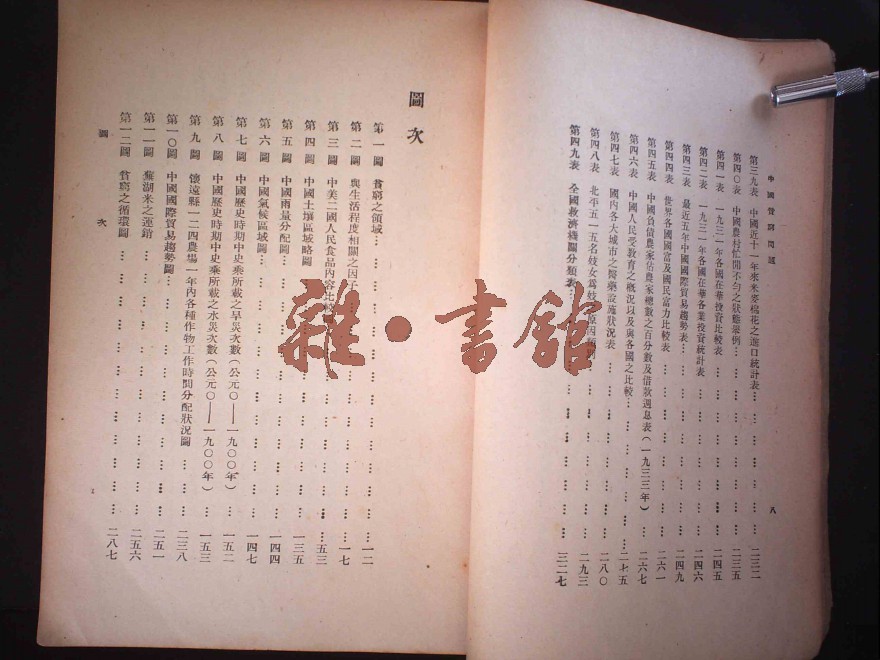 中國貧窮問題
八
第三九表 中國近十一年來米麥棉花之進口統計表 二三二
第四〇表 中國農村忙閒不勻之狀態舉例 二三五
第四一表 一九三一年各國在華投資比較表 二四五
第四二表 一九三一年各國在華各業投資統計表 二四六
第四三表 最近五年中國國際貿易趨勢表 二四九
第四四表 世界各國國富及國民富力比較表 二六一
第四五表 中國負債農家佔農家總數之百分數及借款週息表(一九三三年) 二六七
第四六表 中國人民受教育之概況以及與各國之比較 二七五
第四七表 國內各大城市之醫藥設施狀況表 二八〇
第四八表 北平五一五名妓女爲妓 原因 二九三
第四九表 全國救濟機關分類表 三二七
圖次
第一圖 貧窮之領域 一二
第二圖 與生活程度相關之因子 一七
第三圖 中美二國人民食品內容比較 五三
第四圖 中國土壤區域略圖 一三五
第五圖 中國雨量分配圖 一四四
第六圖 中國氣候區域圖 一四七
第七圖 中國歷史時期中史乘所載之旱災次數(公元〇——一九〇〇年) 一五二
第八圖 中國歷史時期中史乘所載之水災次數(公元〇——一九〇〇年) 一五三
第九圖 懷遠縣一二四農場一年內各種作物工作時間分配狀況圖 二三八
第一〇圖 中國國際貿易趨勢圖 二五一
第一一圖 蕪湖米之運銷 二五六
第一二圖 貧窮之循環圖 二八七
圖次
雜·書館